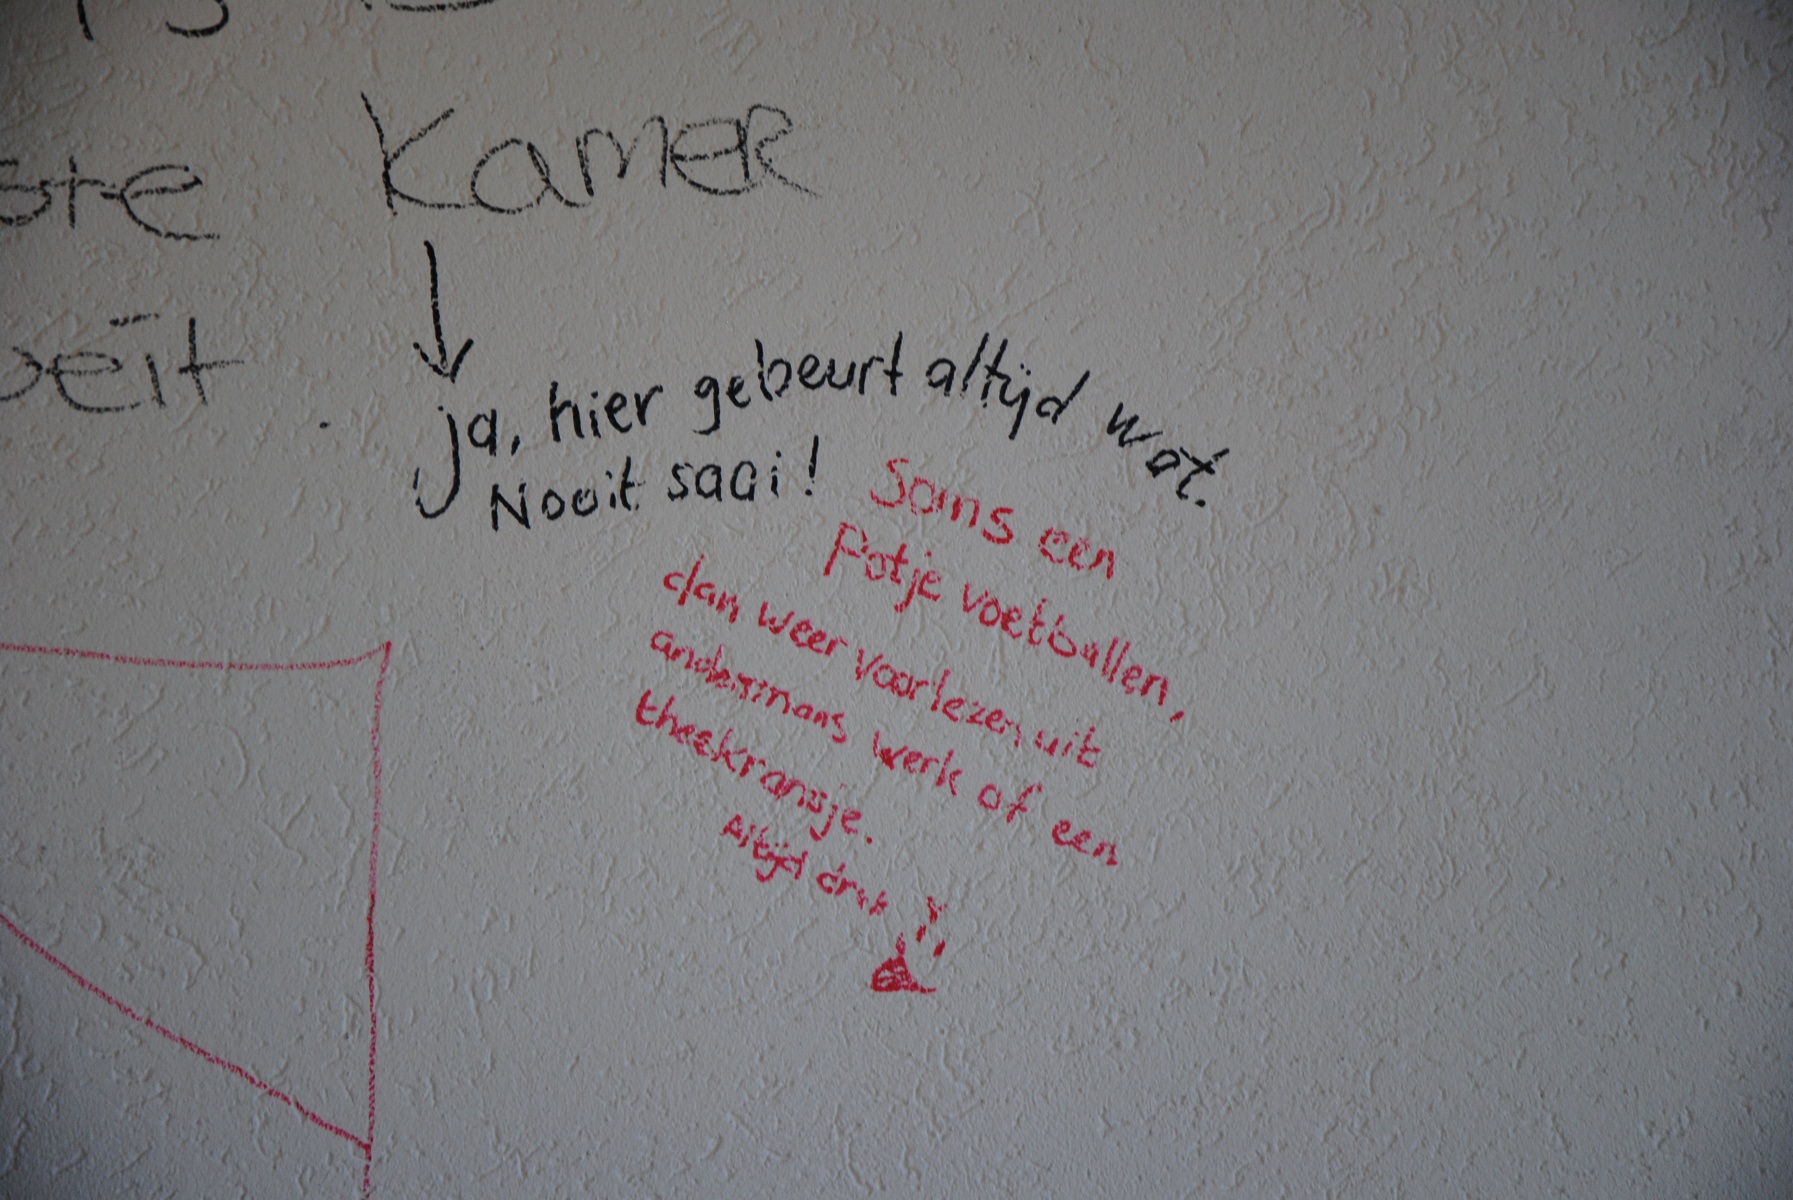 Kamer
ja, hier gebeurt altijd wat.
Nooit saai!
Soms een
Potje voetballen,
dan weer voorlezen uit
andermans werk of een
theekransje.
Altijd druk